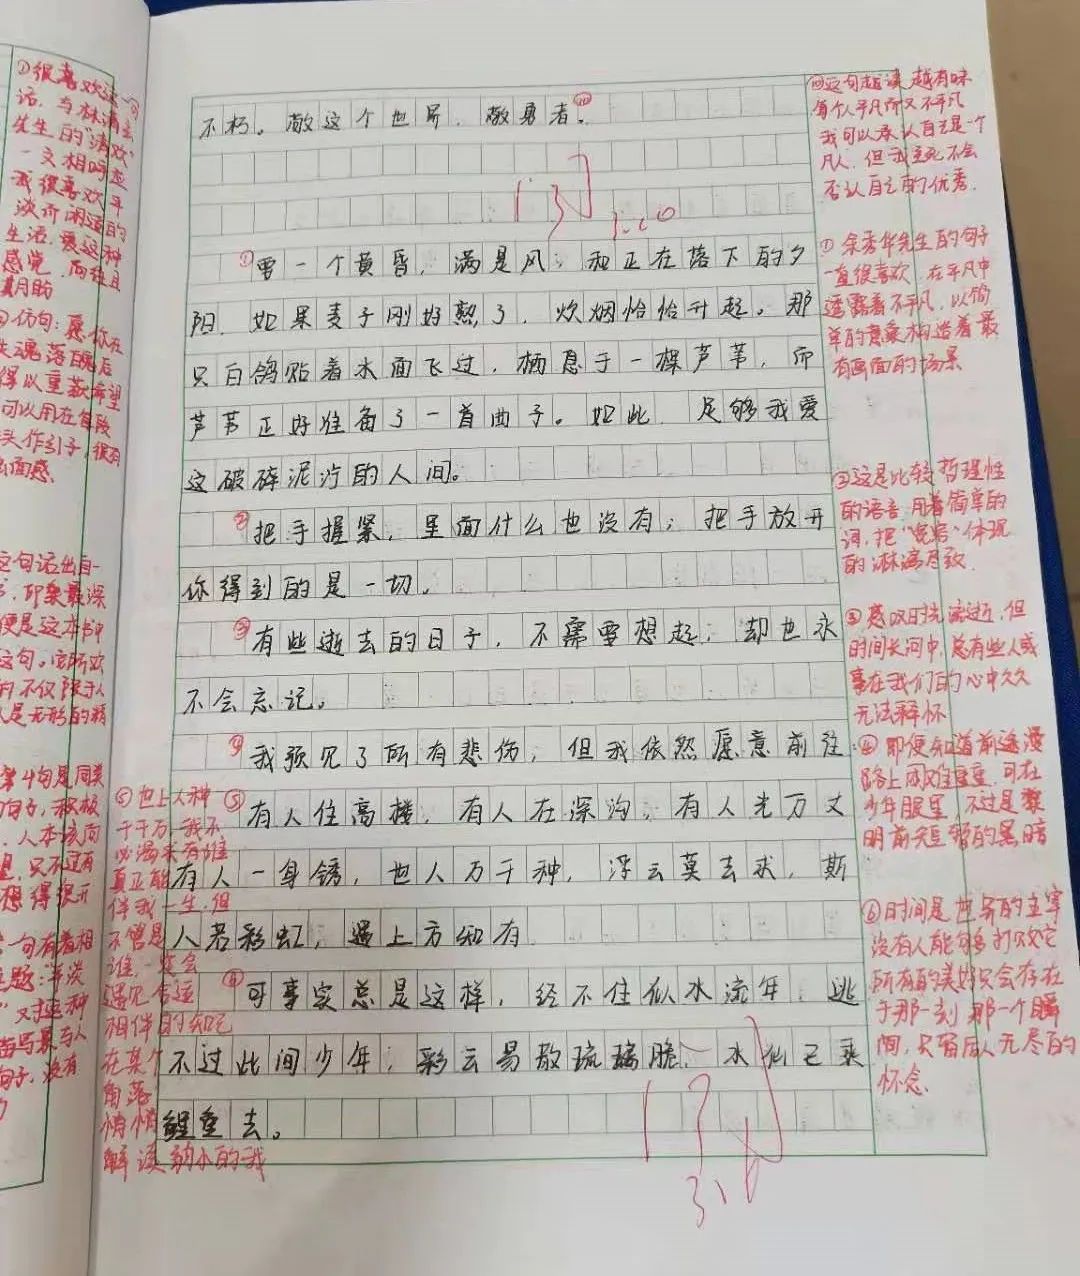 不朽。敬这个世界，敬勇者。⑩
阅
3.10
①要一个黄昏，满是风，和正在落下的夕
阳，如果麦子刚好熟了，炊烟恰恰升起。那
只白鸽贴着水面飞过，栖息于一棵芦苇，而
芦苇正好准备了一首曲子。如此，足够我爱
这破碎泥泞的人间。
②把手握紧，里面什么也没有；把手放开
你得到的是一切。
③有些逝去的日子，不需要想起，却也永
不会忘记。
④我预见了所有悲伤，但我依然愿意前往
⑤有人住高楼，有人在深沟，有人光万丈
有人一身锈，世人万千种，浮云莫去求，斯
人若彩虹，遇上方知有
⑥可事实总是这样，经不住似水流年，逃
不过此间少年；彩云易散琉璃脆，水仙已乘
鲤鱼去。
阅
⑩这句越读越有味
每个人平凡而又不平凡
我可以承认自己是个
凡人，但我至死不会
否认自己的优秀。
①余秀华先生的句子
一直很喜欢，在平凡中
透露着不平凡，以简
单的意象构造着最
有画面的场景
②这是比较哲理性
的语言，用着简单的
词，把“宽容”体现
的淋漓尽致
③感叹时光流逝，但
时间长河中，总有些人或
事在我们的心中久久
无法释怀
④即便知道前途漫
路上困难重重，可在
少年眼里，不过是黎
明前短暂的黑暗
⑥时间是世界的主宰
没有人能够打败它
所有的美好只会存在
于那一刻那一个瞬
间，只留后人无尽的
怀念
⑤世上人种
千千万，我不
必渴求有谁
真正能
伴我一生，但
不管是
谁，一定会
遇见命运
相伴的知己
在某个
角落
悄悄
解读渺小的我
①很喜欢这句
话，与林清玄
先生的“清欢”
一文相呼应
我很喜欢平
淡而闲适的
生活，爱这种
感觉，而且
仿句：愿你在
失魂落魄后
得以重获希望
可以用在每段
头作引子，很有
画面感
这句话出自一
书，印象最深
便是这本书中
这句。它所欢
的不仅限于人
是无形的精
第4句是同类
句子，积极
，人本该向
望，只不过有
想得很开
句有着相
主题：平淡
对这种
写景与人
句子，没有